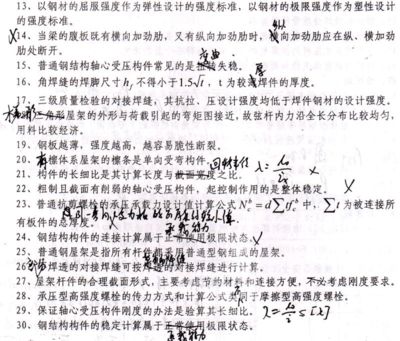 13、以钢材的屈服强度作为弹性设计的强度标准，以钢材的极限强度作为塑性设计
的强度标准。
14、当梁的腹板既有横向加劲肋，又有纵向加劲肋时，横向加劲肋应在纵、横加劲
肋处断开。
15、普通钢结构轴心受压构件常见的是扭转失稳。
16、角焊缝的焊脚尺寸 h, 不得小于1.5√t，t 为较薄焊件的厚度。
17、三级质量检验的对接焊缝，其抗拉、压设计强度均低于焊件钢材的设计强度。
角形屋架的外形与荷载引起的弯矩图接近，故弦杆内力沿全长分布比较均匀，
用料比较经济。
19、钢板越薄，强度越高，越容易脆性断裂。
20、有檩体系屋架的檩条是单向受弯构件。
21、构件的长细比是其计算长度与截面宽度之比。 回转半径
22、粗制且截面有削弱的轴心受压构件，起控制作用的是整体稳定。 X
23、普通抗剪螺栓的承压承载力设计值计算公式 N = d∑tf 中，∑t 为被连接所
有板件的总厚度。
承载能力
24、钢结构构件的连接计算属于正常使用极限状态。
25、普通钢屋架是指所有杆件都采用普通型钢组成的屋架。
26、焊透的对接焊缝可按焊透的对接焊缝进行计算。
27、屋架杆件的合理截面形式，主要考虑节约材料和连接方便，不必考虑刚度要求。
28、承压型高强度螺栓的传力方式和计算公式共同于摩擦型高强度螺栓。
29、保证轴心受压构件刚度的办法是验算其长细比。
30、钢结构构件的稳定计算属于正常使用极限状态。
承载能力